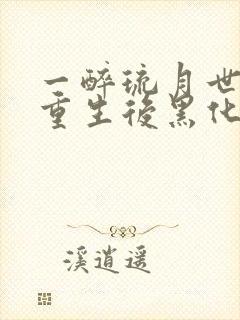 一醉琉月世
重生後黑化
溪逍遥